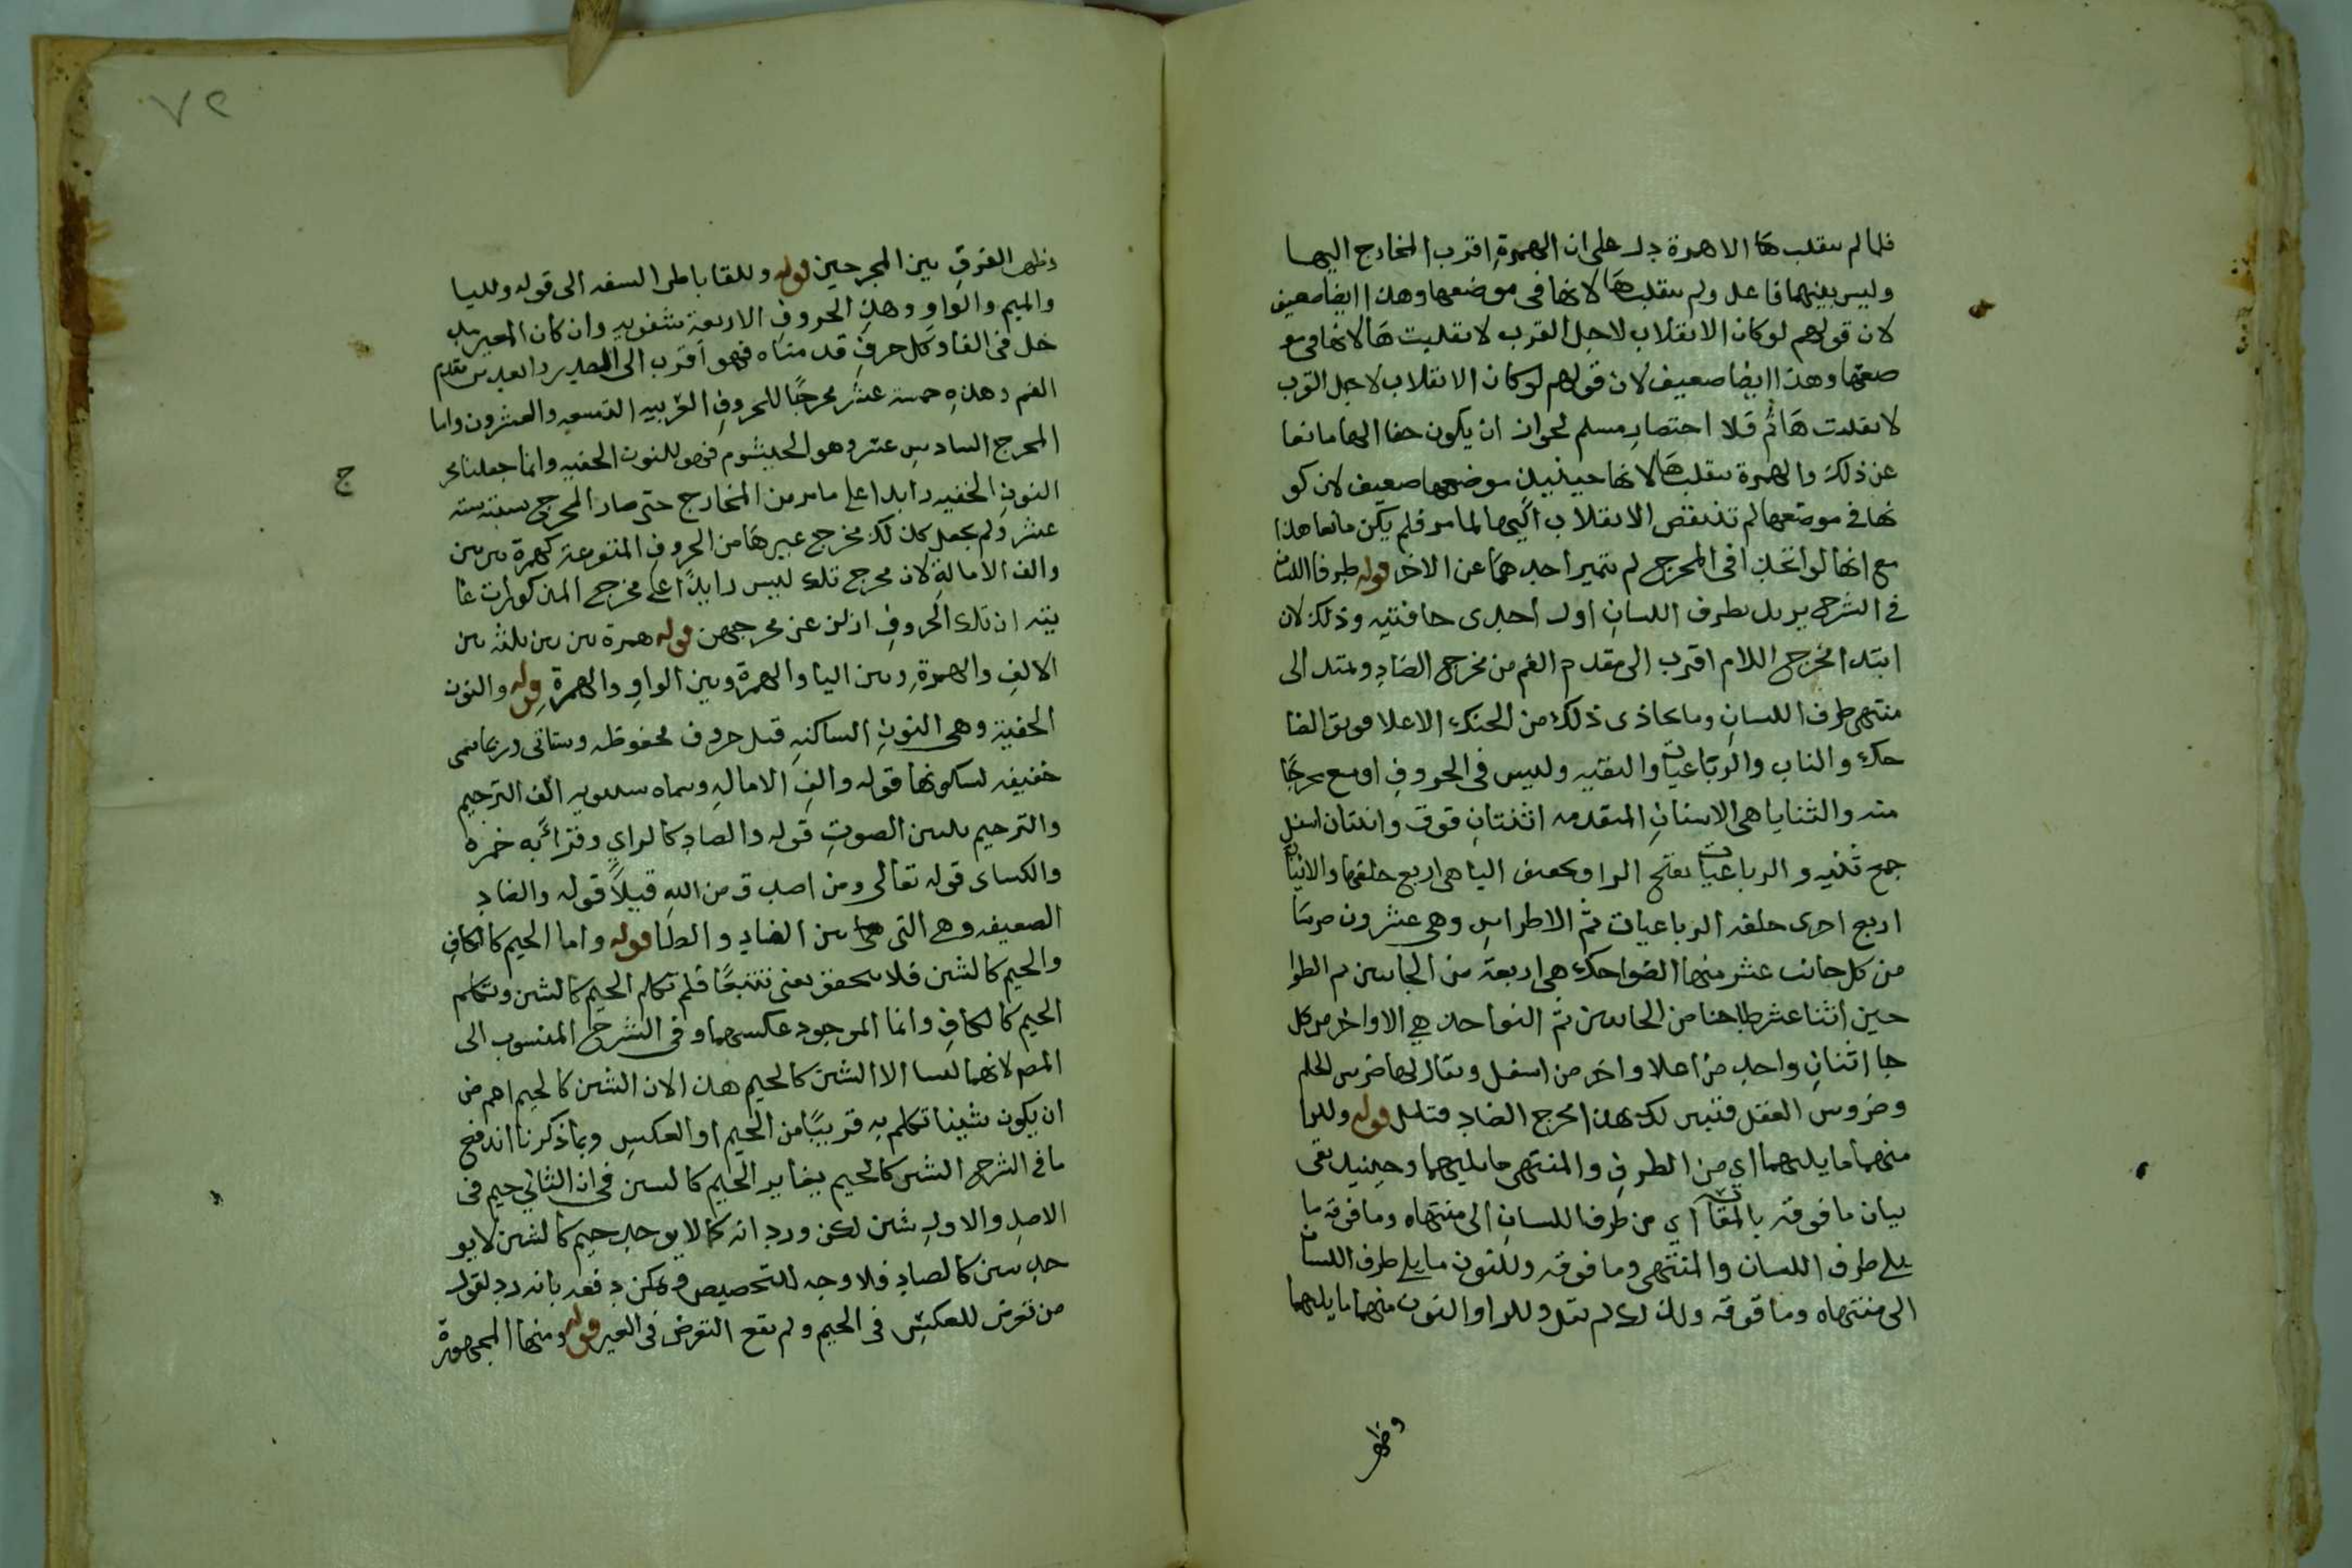 فلما لم تنقلب هآ الا همزة دل على ان الهمزة اقرب المخارج اليها
وليس بينهما فاعل ولم تنقلب هآ لانها في موضعها وهذا ايضا ضعيف
لان قولهم لو كان الانقلاب لاجل القرب لانقلبت هآ لانها في مو
ضعها وهذا ايضا ضعيف لان قولهم لو كان الانقلاب لاجل القرب
لانقلبت هآ ثم فلا مسلم لجواز ان يكون خفا الها مانعا
عن ذلك والهمزة تنقلب هآ لانها حينئيذ موضعها ضعيف لان كو
نها في موضعها لم تنتقض الانقلاب اليها لما مر فلم يكن مانعا هذا
مع انها لو اتحدا في المخرج لم تتميز احدهما عن الاخر قوله طرفا اللسان
في الشرح يريد بطرف اللسان اول احدى حافتيه وذلك لان
ابتدا مخرج اللام اقرب الى مقدم الفم من مخرج الضاد ويمتد الى
منتهى طرف اللسان وما يحاذى ذلك من الحنك الاعلا فويق الضا
حك والناب والرباعيات والثنيه وليس في الحروف اوسع مخرجا
منه والثنايا هى الاسنان المتقدمه اثنتان فوق واثنتان اسفل
جمع ثنيه والرباعيات بفتح الرا وتخفيف اليا هى اربع خلفها والانياب
اربع اخرى خلف الرباعيات ثم الاضراس وهى عشرون ضرسا
من كل جانب عشر منها الضواحك هى اربعة من الجانبين ثم الطوا
حين اثنا عشر طاحنا من الجانبين ثم النواجذ هي الاواخر من كل
جا اثنان واحد من اعلا واخر من اسفل ويقال لها ضرس الحلم
وضروس العقل فتبين لك بهذا مخرج الضاد قوله وللرا
منهما ما يليهما اي من الطرف والمنتهى ما يليهما وحينيذ بقى
بيان ما فوقه اي من طرف اللسان الى منتهاه وما فوقه ما
يلى طرف اللسان والمنتهى وما فوقه وللنون ما يلى طرف اللسان
الى منتهاه وما فوقه ولذلك لم يقل وللرا والنون منهما ما يليهما
وظهر
٧٢
وظهر الفرق بين المخرجين قوله وللفا باطن الشفه الى قوله ولليا
والميم والواو وهذه الحروف الاربعة شفويه وان كان لغير
خل في الفا وكل حرف قدمناه فهو اقرب الى الصدر مقدم
الفم وهذه خمسة عشر مخرجا للحروف العربيه التسعه والعشرون واما
المخرج السادس عشر وهو الخيشوم فهو للنون الخفيه وانما جعلنا مخر
ج
النون الخفيه زايدا على ما مر من المخارج حتى صار المخرج ستة
عشر ولم يجعل كذلك مخرج غيرها من الحروف المتفرعة كهمزة بين بين
والف الامالة لان مخرج تلك ليس زايدا على مخرج المذكورات غا
يته ان تلك الحروف ازلن عن مخرجهن قوله همزة بين بين ثلثه بين
الالف والهمزة وبين اليا والهمزة وبين الواو والهمزة قوله والنون
الخفية وهى النون الساكنه قبل حروف محفوظه وستاتى وربما سمى
خفيفه لسكونها قوله والف الاماله وسماه سيبويه الف الترخيم
والترخيم تليين الصوت قوله والصاد كالزاي وقرا به حمزه
والكساى قوله تعالى ومن اصدق من الله قيلا قوله والضاد
الضعيفه وهى التى بين الضاد والظا قوله واما الجيم كالكاف
والجيم كالشين فلا يتحقق يعنى تتبعا فلم تكلم الجيم كالشين وتكلم
الجيم كالكاف وانما الموجود عكسهما وفى الشرح المنسوب الى
المص لانهما ليسا الا الشين كالجيم هذا لان الشين كالجيم اهم من
ان يكون شينا تكلم به قريبا من الجيم او العكس وبما ذكرنا اندفع
ما في الشرح الشين كالجيم يغاير الجيم كالشين في ان الثاني جيم في
الاصل والاول شين لكن ورد انه كما لا يوجد جيم كالشين لا يو
جد سين كالصاد فلا وجه للتخصيص ويمكن دفعه بانه رد لقول
من تعرض للعكس في الجيم ولم يقع التعرض في الغير قوله ومنها المجهورة